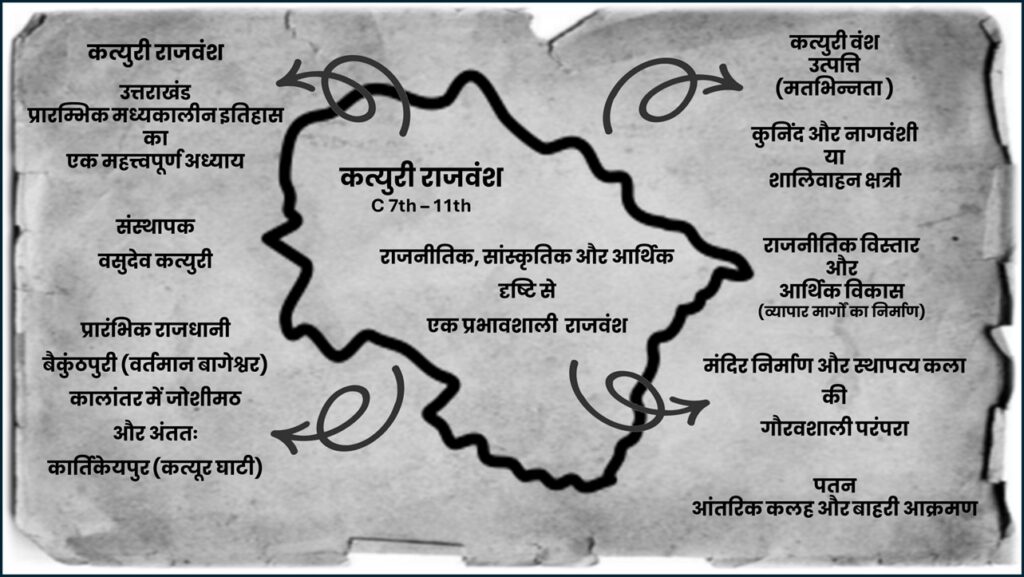 कत्युरी राजवंश
उत्तराखंड
प्रारम्भिक मध्यकालीन इतिहास
का
एक महत्त्वपूर्ण अध्याय
संस्थापक
वसुदेव कत्युरी
प्रारंभिक राजधानी
बैकुंठपुरी (वर्तमान बागेश्वर)
कालांतर में जोशीमठ
और अंततः
कार्तिकेयपुर (कत्यूर घाटी)
कत्युरी राजवंश
C 7th – 11th
राजनीतिक, सांस्कृतिक और आर्थिक
दृष्टि से
एक प्रभावशाली राजवंश
कत्युरी वंश
उत्पत्ति
(मतभिन्नता )
कुनिंद और नागवंशी
या
शालिवाहन क्षत्री
राजनीतिक विस्तार
और
आर्थिक विकास
(व्यापार मार्गों का निर्माण)
मंदिर निर्माण और स्थापत्य कला
की
गौरवशाली परंपरा
पतन
आंतरिक कलह और बाहरी आक्रमण